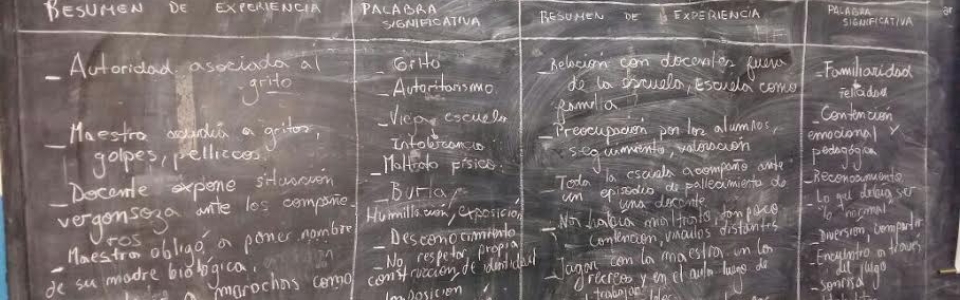 RESUMEN DE EXPERIENCIA
- Autoridad asociada al
grito
- Maestra a gritos,
golpes, pellizcos.
- Docente expone situación
vergonsoza ante los compañe-
ros
- Maestra obligó a poner nombre
de su madre biológica,
a morochas como
PALABRA
SIGNIFICATIVA
- Grito
- Autoritarismo
- Vieja escuela
Intolerancia
- Maltrato físico.
- Burla
Humillación, exposición
- Desconocimiento
- No respetar propia
construcción de identidad
Imposición
RESUMEN DE EXPERIENCIA
- Relación con docentes fuera
de la escuela, Escuela como
familia
- Preocupación por los alumnos,
seguimiento, valoración
- Toda la escuela acompaña ante
un episodio de fallecimiento de
una docente
- No había maltrato, tampoco
contención, vínculos distantes
- Jugar con la maestra en los
recreos y en el aula luego de
trabajar
PALABRA
SIGNIFICATIVA
- Familiaridad
felicidad
- Contención
emocional y
pedagógica
- Reconocimiento
- Lo que debía ser
lo "normal"
- Diversión, compartir
- Encuentro a través
del juego
- sonrisa